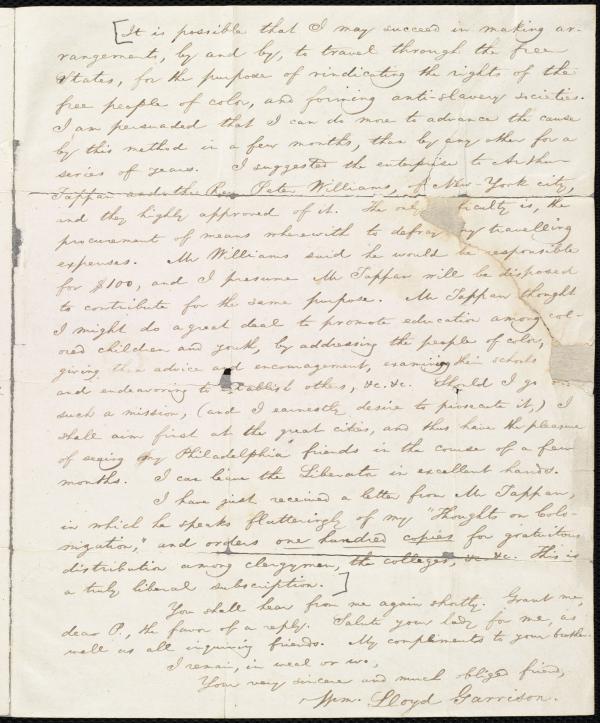 [It is possible that I may succeed in making ar-
rangements, by and by, to travel through the free
States, for the purpose of vindicating the rights of the
free people of color, and forming anti-slavery societies.
I am persuaded that I can do more to advance the cause
by this method in a few months, than by any other for a
series of years. I suggested the enterprise to Arthur
Tappan and the Rev. Peter Williams, of New-York city,
and they highly approved of it. The only iculty is, the
procurement of means wherewith to defray my travelling
expenses. Mr Williams said he would be responsible
for $100, and I presume Mr Tappan will be disposed
to contribute for the same purpose. Mr Tappan thought
I might do a great deal to promote education among col-
ored children and youth, by addressing the people of color,
giving them advice and encouragement, examining their schools
and endeavoring to establish others, &c. &c. Should I go on
such a mission, (and I earnestly desire to prosecute it,) I
shall aim first at the great cities, and thus have the pleasure
of seeing my Philadelphia friends in the course of a few
months. I can leave the Liberator in excellent hands.
I have just received a letter from Mr Tappan,
in which he speaks flatteringly of my "Thoughts on Colo-
nization," and orders one hundred copies for gratuitous
distribution among clergymen, the colleges, &c. &c. This is
a truly liberal subscription.]
You shall hear from me again shortly. Grant me,
dear P., the favor of a reply. Salute your lady for me, as
well as all inquiring friends. My compliments to your brother.
I remain, in weal or wo,
Your very sincere and much obliged friend,
Wm. Lloyd Garrison.